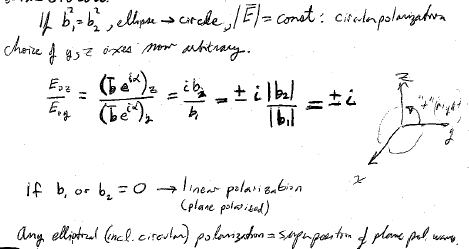 If b₁² = b₂², ellipse → circle, |E̅| = const: circular polarization
choice of y, z axes now arbitrary.
E₀z/E₀y = (b̅e^{iα})_z/(b̅e^{iα})_y = ib₂/b₁ = ± i |b₂|/|b₁| = ± i
z
"+" (right)
y
x
if b₁ or b₂ = 0 → linear polarization
(plane polarized)
Any elliptical (incl. circular) polarization = superposition of plane pol. waves.